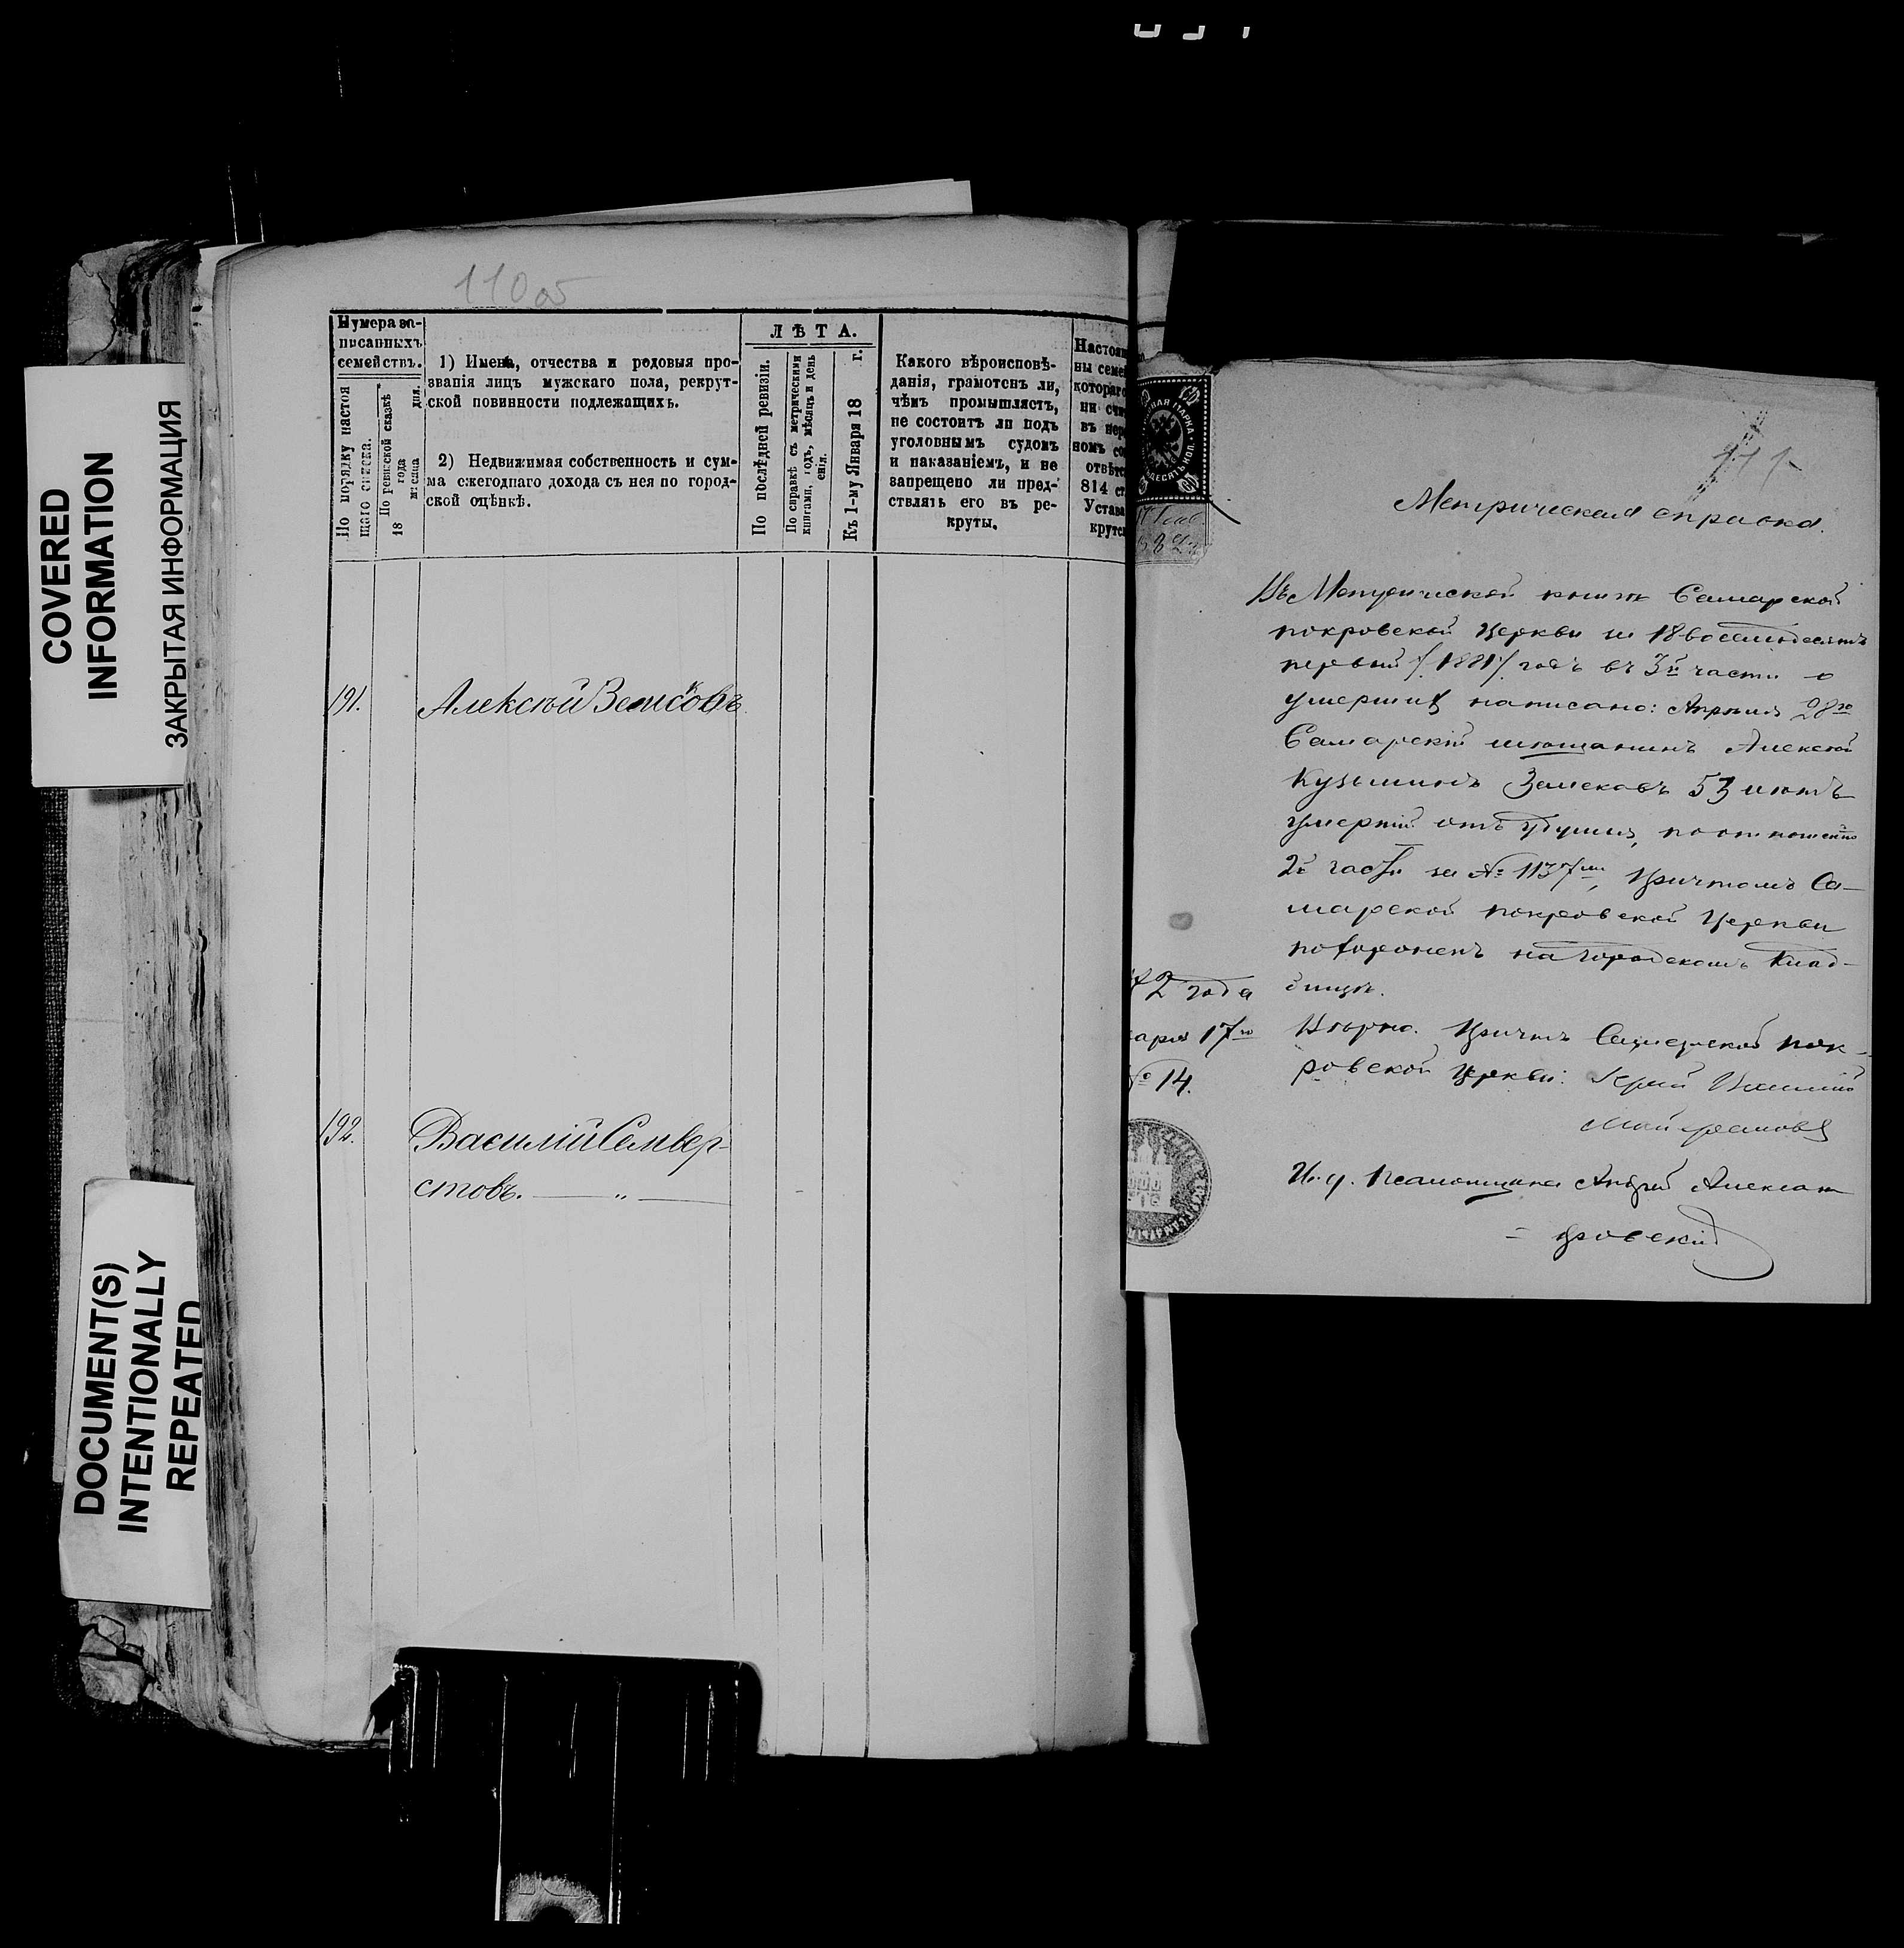 COVERED
INFORMATION
ЗАКРЫТАЯ ИНФОРМАЦИЯ
DOCUMENT(S)
INTENTIONALLY
REPEATED
110 об
Нумера за-
писанныхъ
семействъ.
По порядку настоя
щаго списка.
По ревизской сказкѣ
18 года
мѣсяца дня.
1) Имена, отчества и родовыя про-
званія лицъ мужскаго пола, рекрут-
ской повинности подлежащихъ.
2) Недвижимая собственность и сум-
ма ежегоднаго дохода съ нея по город-
ской оцѣнкѣ.
ЛѢТА.
По послѣдней ревизіи.
По справкѣ съ метрическими
книгами, годъ, мѣсяцъ и день
Къ 1-му Января 18 г.
Какого вѣроисповѣ-
данія, грамотенъ ли,
чѣмъ промышляетъ,
не состоитъ ли подъ
уголовнымъ судомъ
и наказаніемъ, и не
запрещено ли пред-
ствлять его въ ре-
круты.
Настоя
ны семе
котораго
ни сч
въ
номъ
отвѣт
814 ст
Устава
крутс
191. Алексѣй Земсковъ
192. Василій Селивер-
стовъ. — „ —
111
Метрическая справка.
Въ Метрической книгѣ Самарской
покровской Церкви за 18 восемьдесятъ
первый /1881/ годъ въ 3й части о
умершихъ написано: Апрѣля 28го
Самарскій мѣщанинъ Алексѣй
Кузьминъ Земсковъ 53 лѣтъ
умершій отъ удушья, по отношенію
2й части за № 1137мъ, Причтомъ Са-
марской покровской Церкви
похороненъ на городскомъ Клад-
бищѣ.
2 года
аря 17го
№ 14.
Вѣрно. Причтъ Самарской пок-
ровской Церкви: Іерей
И. д. Псаломщика Андрей Алексан
= дровскій